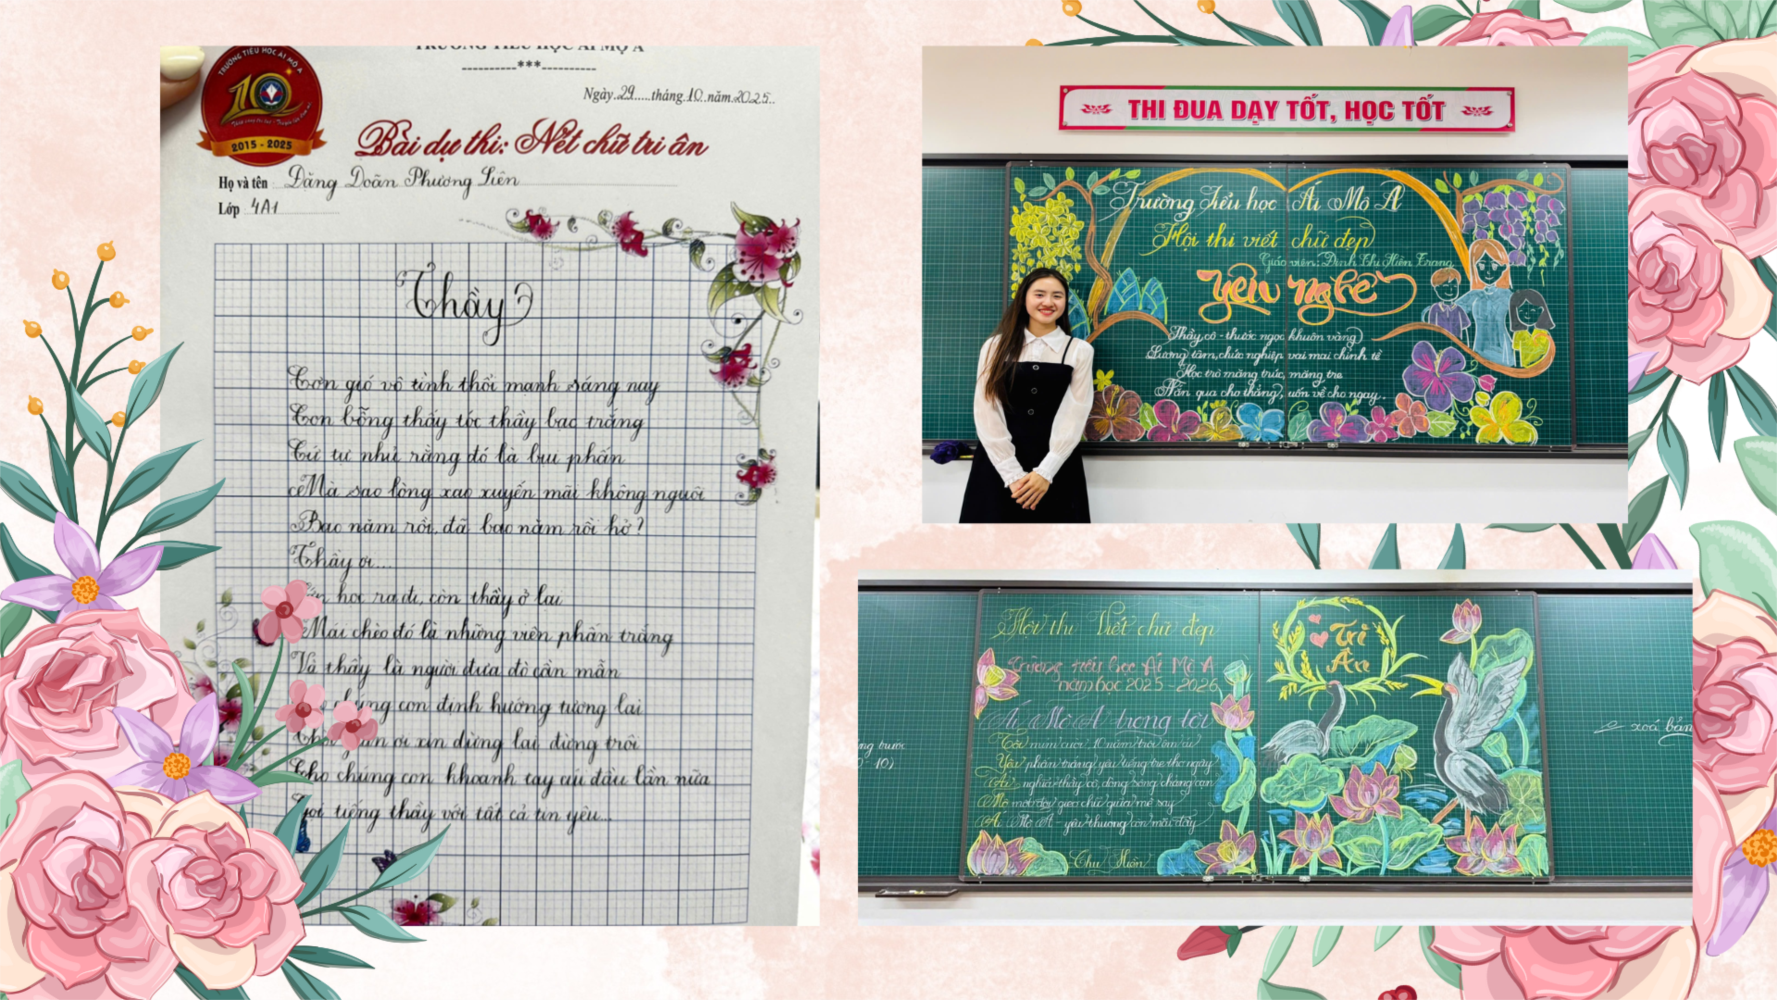 TRƯỜNG TIỂU HỌC ÁI MỘ A
----------***----------
TRƯỜNG TIỂU HỌC ÁI MỘ A
10
2015 - 2025
Ngày 29 tháng 10 năm 2025
Bài dự thi: Nét chữ tri ân
Họ và tên Đặng Doãn Phương Liên
Lớp 4A1
Thầy
Cơn gió vô tình thổi mạnh sáng nay
Con bỗng thấy tóc thầy bạc trắng
Cứ tự nhủ rằng đó là bụi phấn
Mà sao lòng xao xuyến mãi không nguôi
Bao năm rồi, đã bao năm rồi hở?
Thầy ơi...
học ra đi, còn thầy ở lại
Mái chèo đó là những viên phấn trắng
Và thầy là người đưa đò cần mẫn
chúng con định hướng tương lai
ơi xin dừng lại đừng trôi
Cho chúng con khoanh tay cúi đầu lần nữa
Gọi tiếng thầy với tất cả tin yêu...
THI ĐUA DẠY TỐT, HỌC TỐT
Trường Tiểu học Ái Mộ A
Hội thi viết chữ đẹp
Giáo viên: Đinh Thị Hiền Trang
Yêu nghề
Thầy, cô - thước ngọc khuôn vàng
Lương tâm, chức nghiệp vai mai chỉnh tề
Học trò măng trúc, măng tre
Nắn qua cho thẳng, uốn về cho ngay.
Hội thi Viết chữ đẹp
Trường tiểu học Ái Mộ A
năm học 2025 - 2026
Ái Mộ A trong tôi
Tôi mỉm cười, 10 năm trôi êm ái
Yêu phấn trắng yêu tiếng trẻ thơ ngây
Ái nghĩa thầy cô, dòng sông chẳng cạn
Mộ
Ái Mộ A - yêu thương còn mãi đây
Thu Hiền
Tri
Ân
ng trước
10)
xoá bản